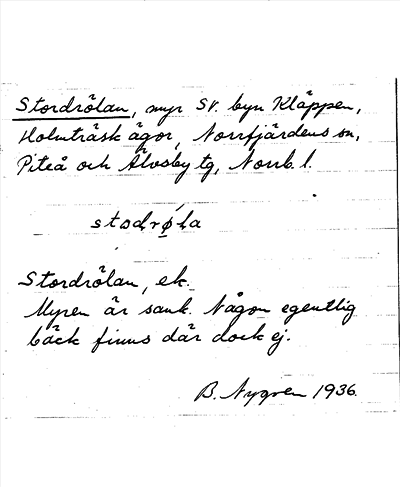 Stordrölan, myr SV. byn Kläppen,
Holmträsk ägor, Norrfjärdens sn,
Piteå och Älvsby tg, Norrb. l.
stodrø̀la
Stordrölan, ek.
Myren är sank. Någon egentlig
bäck finns där dock ej.
B. Nygren 1936.